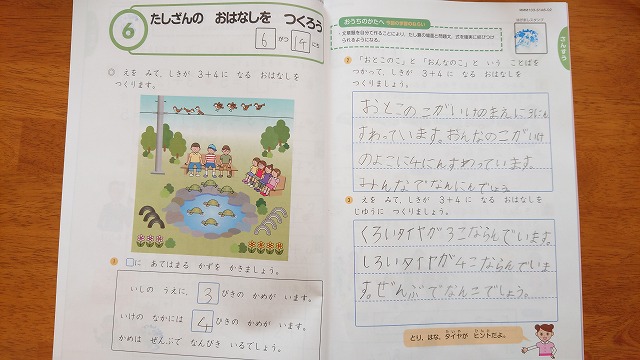 6
たしざんの おはなしを つくろう
6 がつ 14 にち
えを みて、しきが 3+4に なる おはなしを
つくります。
1 □に あてはまる かずを かきましょう。
いしの うえに、 3 びきの かめが います。
いけの なかには 4 ひきの かめが います。
かめは ぜんぶで なんびき いるでしょう。
おうちのかたへ 今回の学習のねらい
・文章題を自分で作ることにより、たし算の場面と問題文、式を確実に結びつけ
られるようになる。
さんすう
2 「おとこのこ」と「おんなのこ」と いう ことばを
つかって、しきが 3+4に なる おはなしを
つくりましょう。
おとこのこがいけのまえに3にん
すわっています。おんなのこがいけ
のよこに4にんすわっています。
みんなでなんにんでしょう。
3 えを みて、しきが 3+4に なる おはなしを
じゆうに つくりましょう。
くろいタイヤが3こならんでいます。
しろいタイヤが4こならんでいま
す。ぜんぶでなんこでしょう。
とり、はな、タイヤが ヒントだよ。